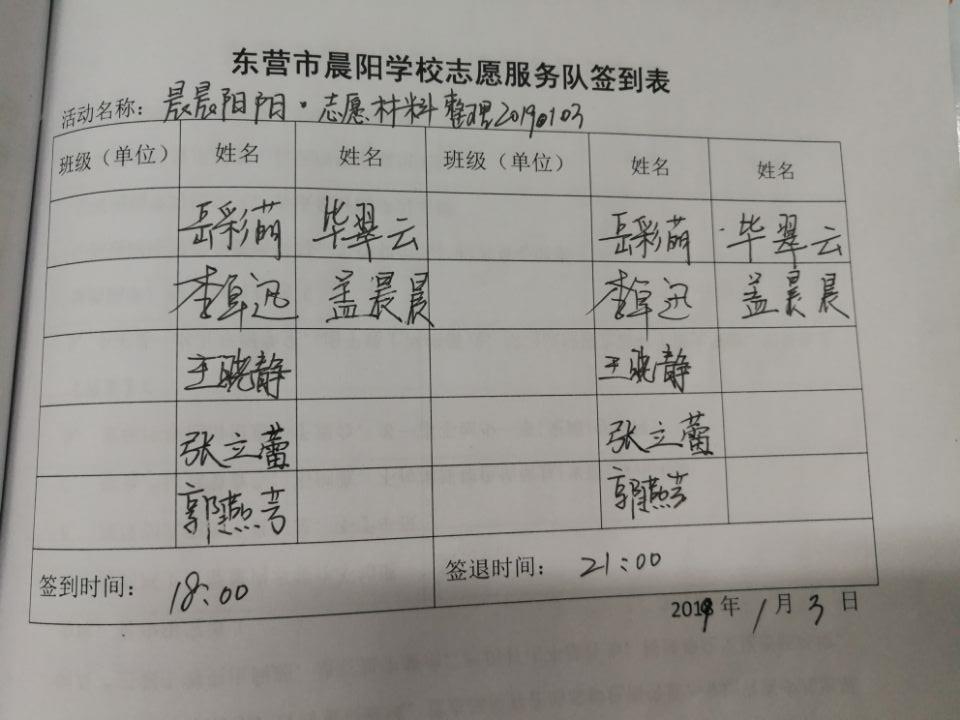 东营市晨阳学校志愿服务队签到表
活动名称：晨晨阳阳·志愿材料整理20190103
班级（单位） 姓名 姓名 班级（单位） 姓名 姓名
岳彩萌 毕翠云 岳彩萌 毕翠云
李卓迅 盖晨晨 李卓迅 盖晨晨
王晓静 王晓静
张立蕾 张立蕾
郭燕芳 郭燕芳
签到时间： 18:00 签退时间： 21:00
2019年1月3日